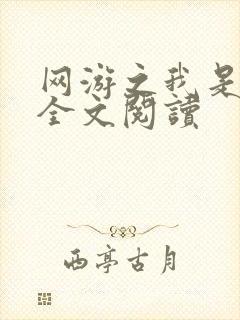 网游之我是
全文閱讀
西亭古月